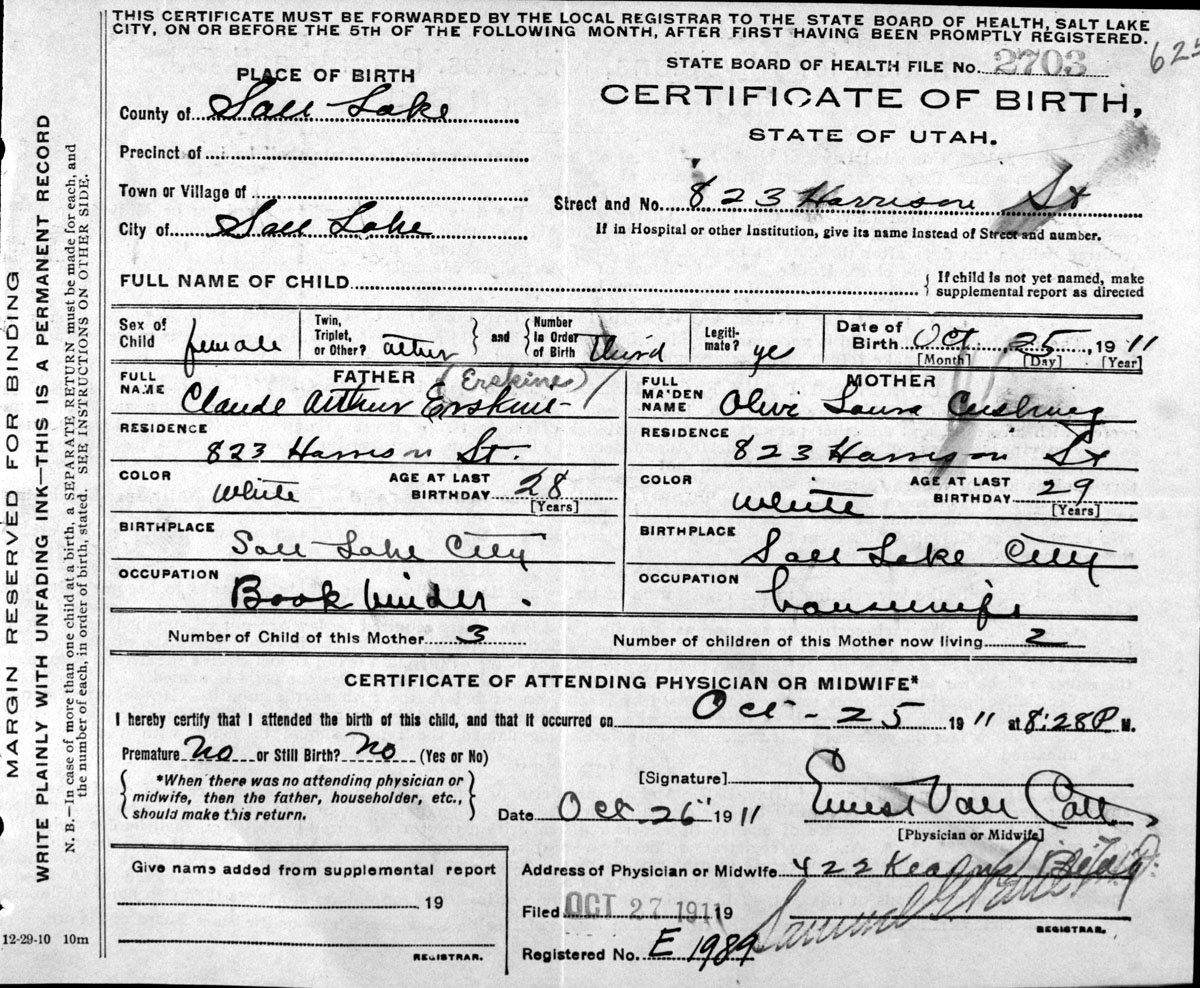 THIS CERTIFICATE MUST BE FORWARDED BY THE LOCAL REGISTRAR TO THE STATE BOARD OF HEALTH, SALT LAKE
CITY, ON OR BEFORE THE 5TH OF THE FOLLOWING MONTH, AFTER FIRST HAVING BEEN PROMPTLY REGISTERED.
STATE BOARD OF HEALTH FILE No. 2703
625
PLACE OF BIRTH
CERTIFICATE OF BIRTH,
STATE OF UTAH.
County of Salt Lake
Precinct of
Town or Village of
City of Salt Lake
Street and No. 823 Harrison St
If in Hospital or other Institution, give its name instead of Street and number.
FULL NAME OF CHILD
{ If child is not yet named, make
supplemental report as directed
Sex of Child female
Twin, Triplet, or Other? other
and { Number In Order of Birth third
Legiti-mate? yes
Date of Birth Oct 25, 1911
[Month] [Day] [Year]
FATHER (Erskine)
FULL NAME Claude Arthur Erskine
RESIDENCE 823 Harrison St.
COLOR White
AGE AT LAST BIRTHDAY 28
[Years]
BIRTHPLACE Salt Lake City
OCCUPATION Book binder.
MOTHER
FULL MAIDEN NAME Olive Laura Cushing
RESIDENCE 823 Harrison St
COLOR White
AGE AT LAST BIRTHDAY 29
[Years]
BIRTHPLACE Salt Lake City
OCCUPATION housewife
Number of Child of this Mother 3
Number of children of this Mother now living 2
CERTIFICATE OF ATTENDING PHYSICIAN OR MIDWIFE*
I hereby certify that I attended the birth of this child, and that it occurred on Oct - 25 1911 at 8:28 P. M.
Premature No or Still Birth? No (Yes or No)
{ *When there was no attending physician or
midwife, then the father, householder, etc.,
should make this return. }
[Signature] Ernest Van Cott
[Physician or Midwife]
Date Oct-26" 1911
Address of Physician or Midwife 422 Kearns Bldg
Filed OCT 27 1911 19
Samuel G.
REGISTRAR.
Registered No. E 1989
Give name added from supplemental report
19
REGISTRAR.
12-29-10 10m
MARGIN RESERVED FOR BINDING
WRITE PLAINLY WITH UNFADING INK—THIS IS A PERMANENT RECORD
N. B.—In case of more than one child at a birth, a SEPARATE RETURN must be made for each, and
the number of each, in order of birth, stated. SEE INSTRUCTIONS ON OTHER SIDE.